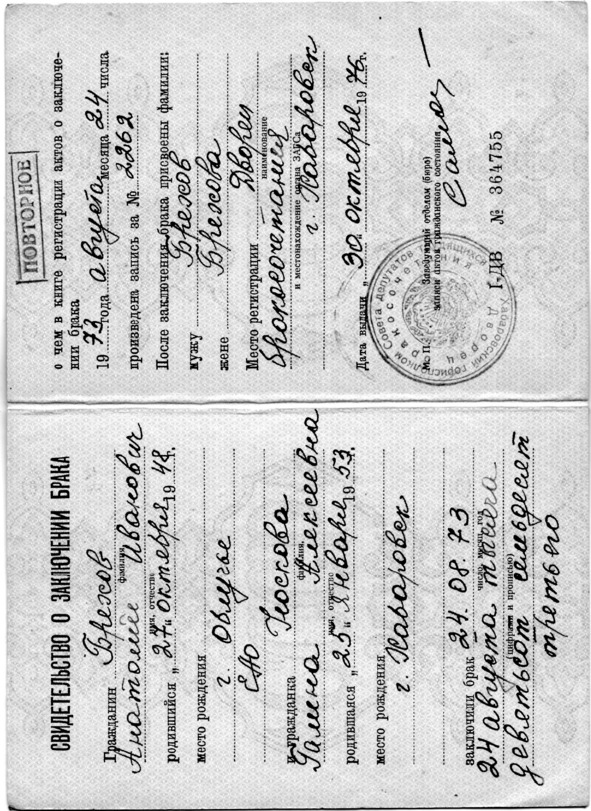 СВИДЕТЕЛЬСТВО О ЗАКЛЮЧЕНИИ БРАКА
Гражданин Брехов
фамилия,
Анатолий Иванович
имя, отчество
родившийся „27“ октября 1948 г.
место рождения
г. Облучье
ЕАО
и гражданка Носкова
фамилия,
Галина Алексеевна
имя, отчество
родившаяся „25“ января 1953 г.
место рождения
г. Хабаровск
заключили брак 24.08.73
число, месяц, год
24 августа тысяча
(цифрами и прописью)
девятьсот семьдесят
третьего
ПОВТОРНОЕ
о чем в книге регистрации актов о заключе-
нии брака
1973 года августа месяца 24 числа
произведена запись за № 2262
После заключения брака присвоены фамилии:
мужу Брехов
жене Брехова
Место регистрации Дворец
наименование
бракосочетания
и местонахождение органа ЗАГСа
г. Хабаровск
Дата выдачи „30“ октября 1976 г.
М. П. Заведующий отделом (бюро)
записи актов гражданского состояния
Хабаровский горисполком Совета депутатов трудящихся
Дворец бракосочетания
I-ДВ № 364755